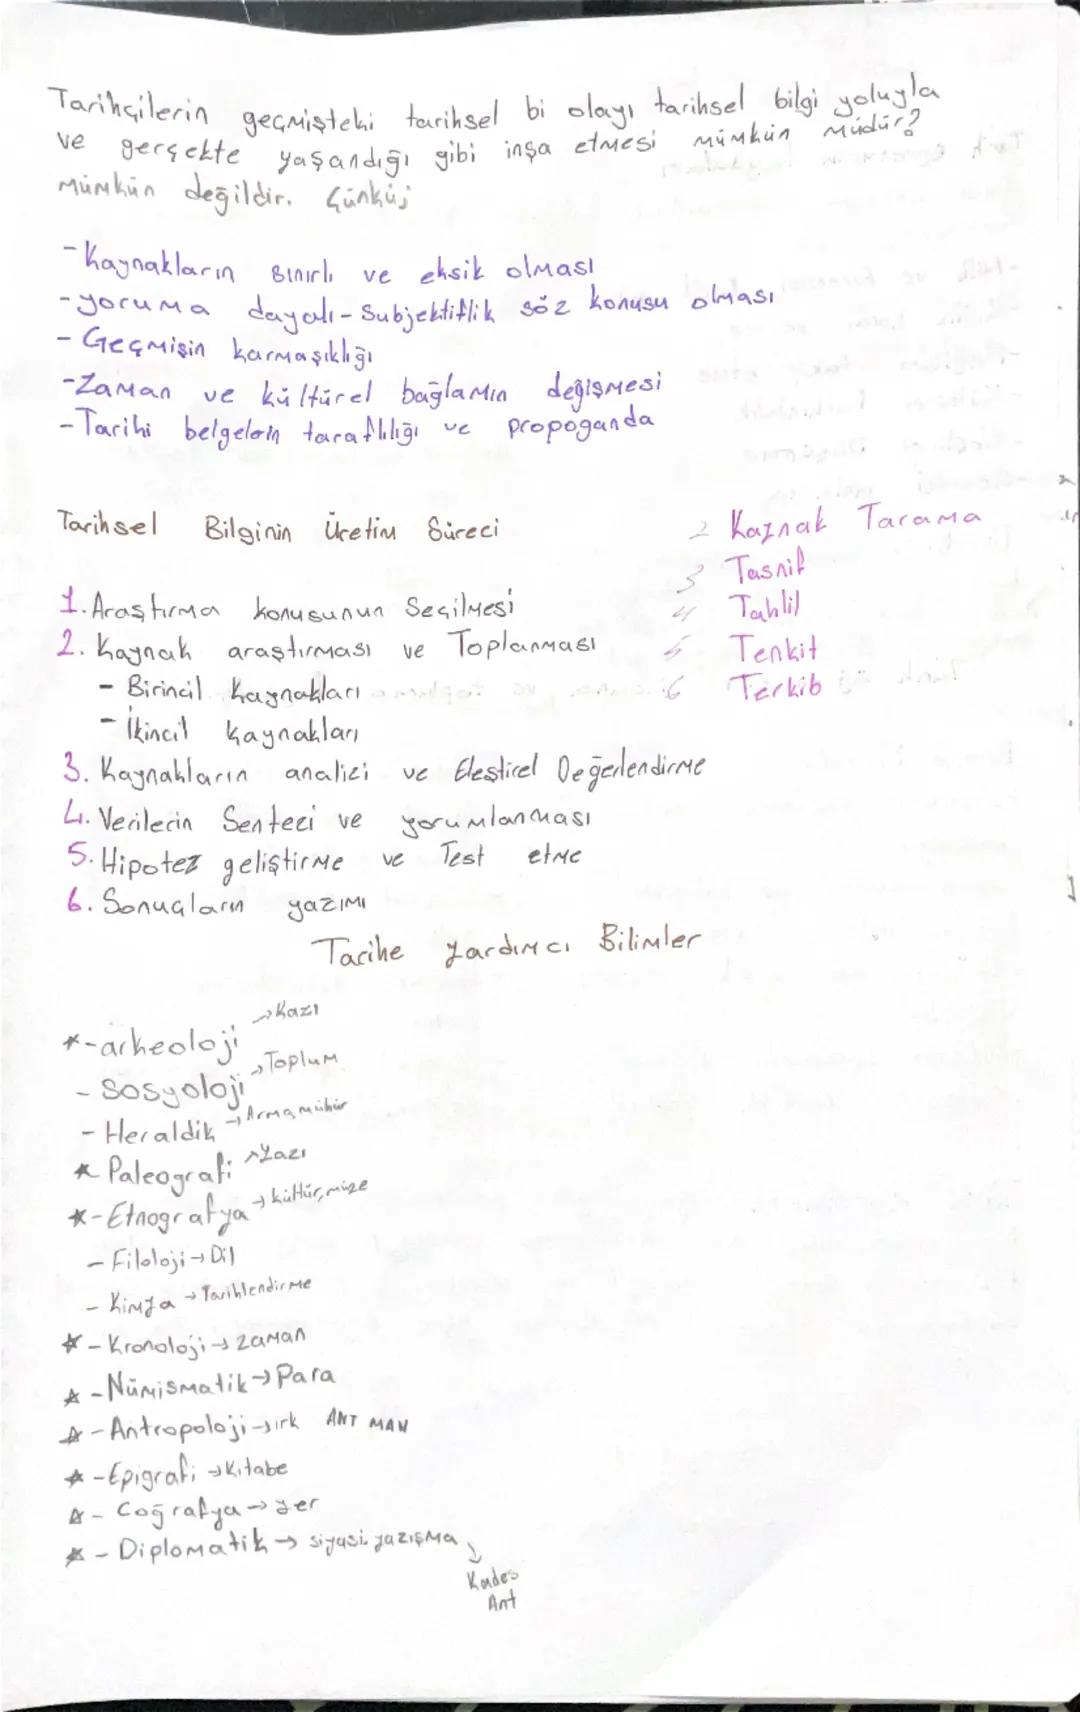 Tarihçilerin geçmişteki tarihsel bi olayı tarihsel bilgi yoluyla
ve gerçekte yaşandığı gibi inşa etmesi mümkün müdür?
Mümkün değildir. Çünkü;
- Kaynakların sınırlı ve eksik olması
- yoruma dayalı - Subjektiflik söz konusu olması
- Geçmişin karmaşıklığı
- Zaman ve kültürel bağlamın değişmesi
- Tarihi belgelerin taraflılığı ve propoganda
Tarihsel Bilginin Üretim Süreci
1. Araştırma konusunun Seçilmesi
2. Kaynak araştırması ve Toplanması
- Birincil Kaynakları
- İkincil Kaynakları
3. Kaynakların analizi ve Eleştirel Değerlendirme
4. Verilerin Sentezi ve yorumlanması
5. Hipotez geliştirme ve Test etme
6. Sonuçların yazımı
2 Kaynak Tarama
3 Tasnif
4 Tahlil
5 Tenkit
6 Terkib
Tarihe Yardımcı Bilimler
*-arkeoloji →Kazı
- Sosyoloji →Toplum
- Heraldik →Arma, mühür
* Paleografi →Yazı
*-Etnografya →kültür, müze
- Filoloji → Dil
- Kimya → Tarihlendirme
* - Kronoloji → zaman
* - Nümismatik → Para
* - Antropoloji → ırk ANT MAN
* - Epigrafi → Kitabe
* - Coğrafya → yer
* - Diplomatik → siyasi yazışma
↓
Kades
Ant